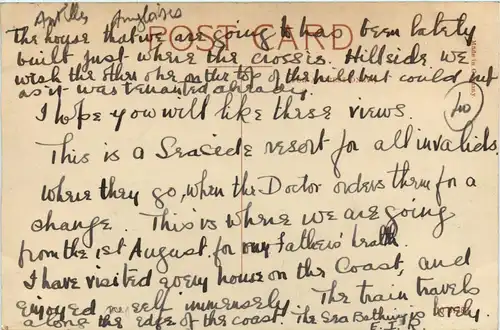 Antilles Anglaises
POST CARD
The house that we are going to has been lately
built just where the cross is. Hillside, we
wish the other one on the top of the hill but could not
as it was tenanted already.
I hope you will like these views.
This is a Seaside resort for all invalids
where they go, when the Doctor orders them for a
change. This is where we are going
from the 1st August for my Father's health.
I have visited every house on the Coast, and
enjoyed myself immensely. The train travels
along the edge of the coast The Sea Bathing is lovely.
40